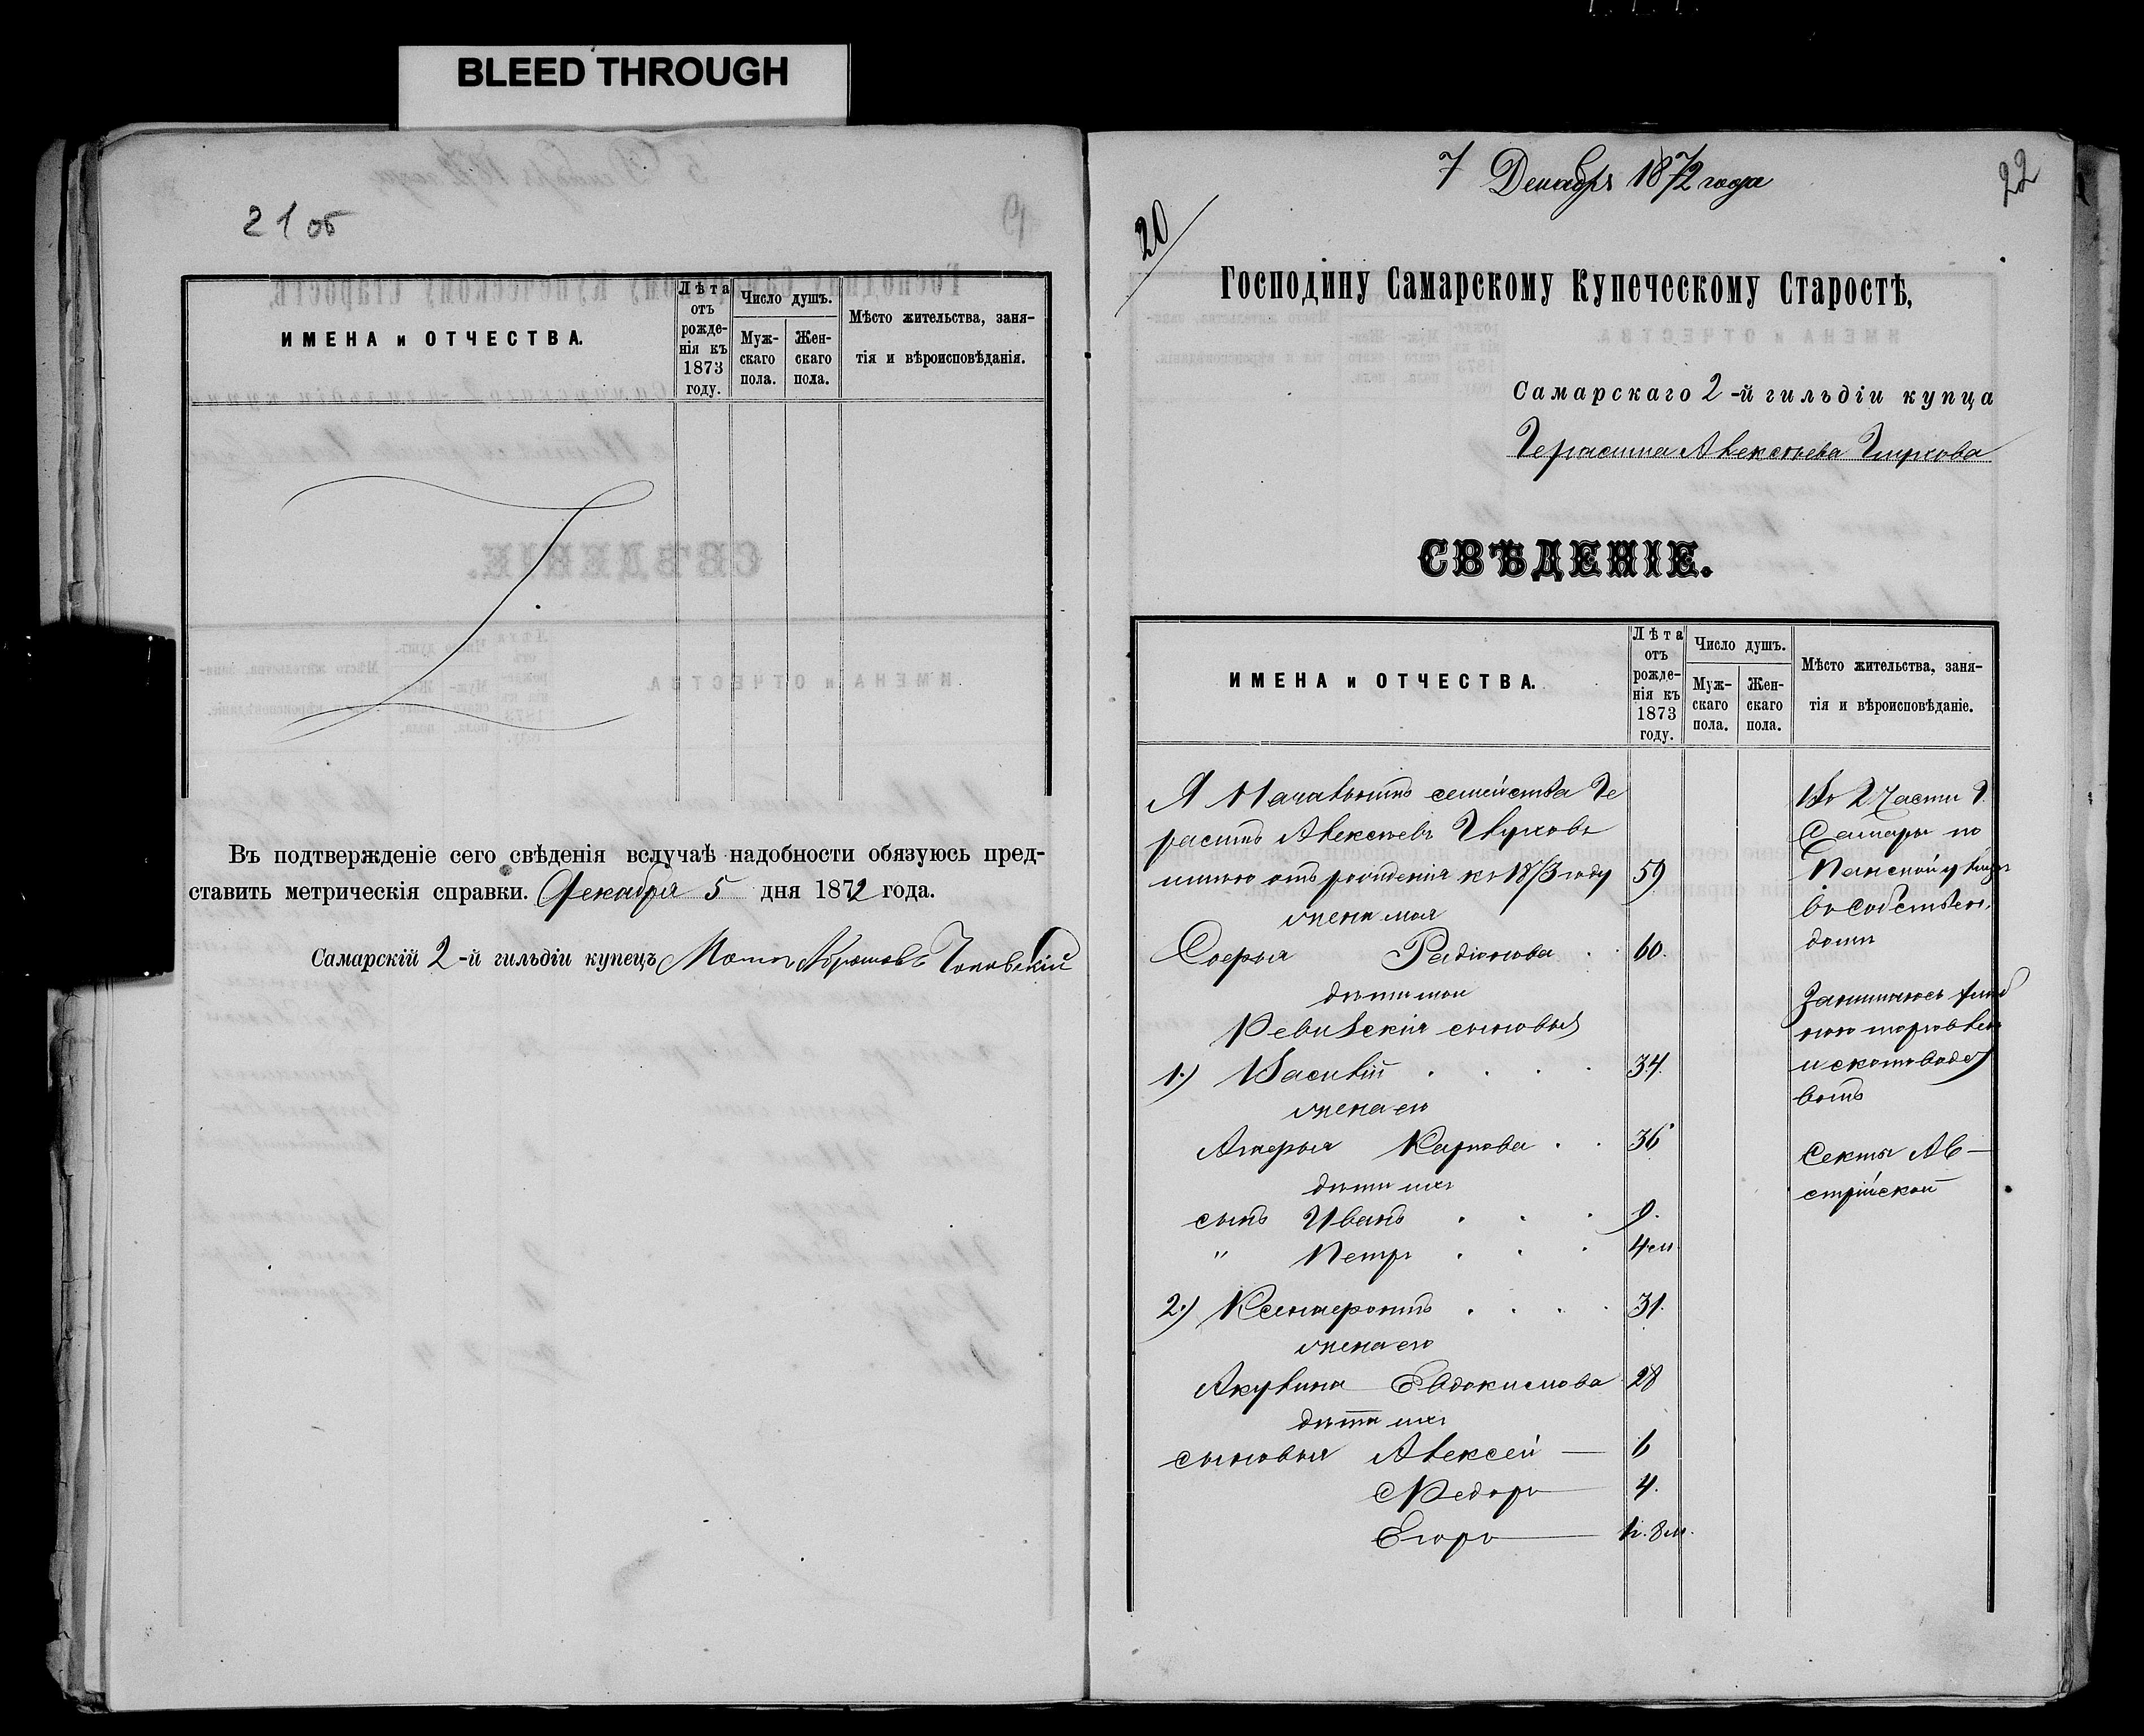 BLEED THROUGH
21 об
ИМЕНА и ОТЧЕСТВА.
Лѣта отъ рожденія къ 1873 году.
Число душъ.
Мужскаго пола.
Женскаго пола.
Мѣсто жительства, заня-
тія и вѣроисповѣданія.
Въ подтвержденіе сего свѣденія вслучаѣ надобности обязуюсь пред-
ставить метрическія справки. Декабря 5 дня 1872 года.
Самарскій 2-й гильдіи купецъ
7 Декабря 1872 года
22
20
Господину Самарскому Купеческому Старостѣ,
Самарскаго 2-й гильдіи купца
Герасима Алексѣева
СВѢДЕНІЕ.
ИМЕНА и ОТЧЕСТВА.
Лѣта
отъ
рожде-
нія къ
1873
году.
Число душъ.
Муж-
скаго
пола.
Жен-
скаго
пола.
Мѣсто жительства, заня-
тія и вѣроисповѣданіе.
Я Начальникъ семейства Ге
расимъ Алексѣевъ
имѣю отъ рожденія къ 1873 году 59
жена моя
Софья Радіонова 60.
дѣти мои
Ревизскія сыновья
1.) Василій 34.
жена его
Карпова 36
дѣти ихъ
сынъ Иванъ 9.
" Петръ 4 м
2.) Ксенофонтъ 31.
жена его
Акулина Евдокимова 28
дѣти ихъ
сыновья Алексей 6
Федоръ 4.
Егоръ 1 г. 8 м.
Во 2 Части г.
Самары по
Панской улицѣ
въ собствен.
домѣ
Занимаюсь
торговлею
и скотоводс
вомъ
Секты Ав-
стрійской